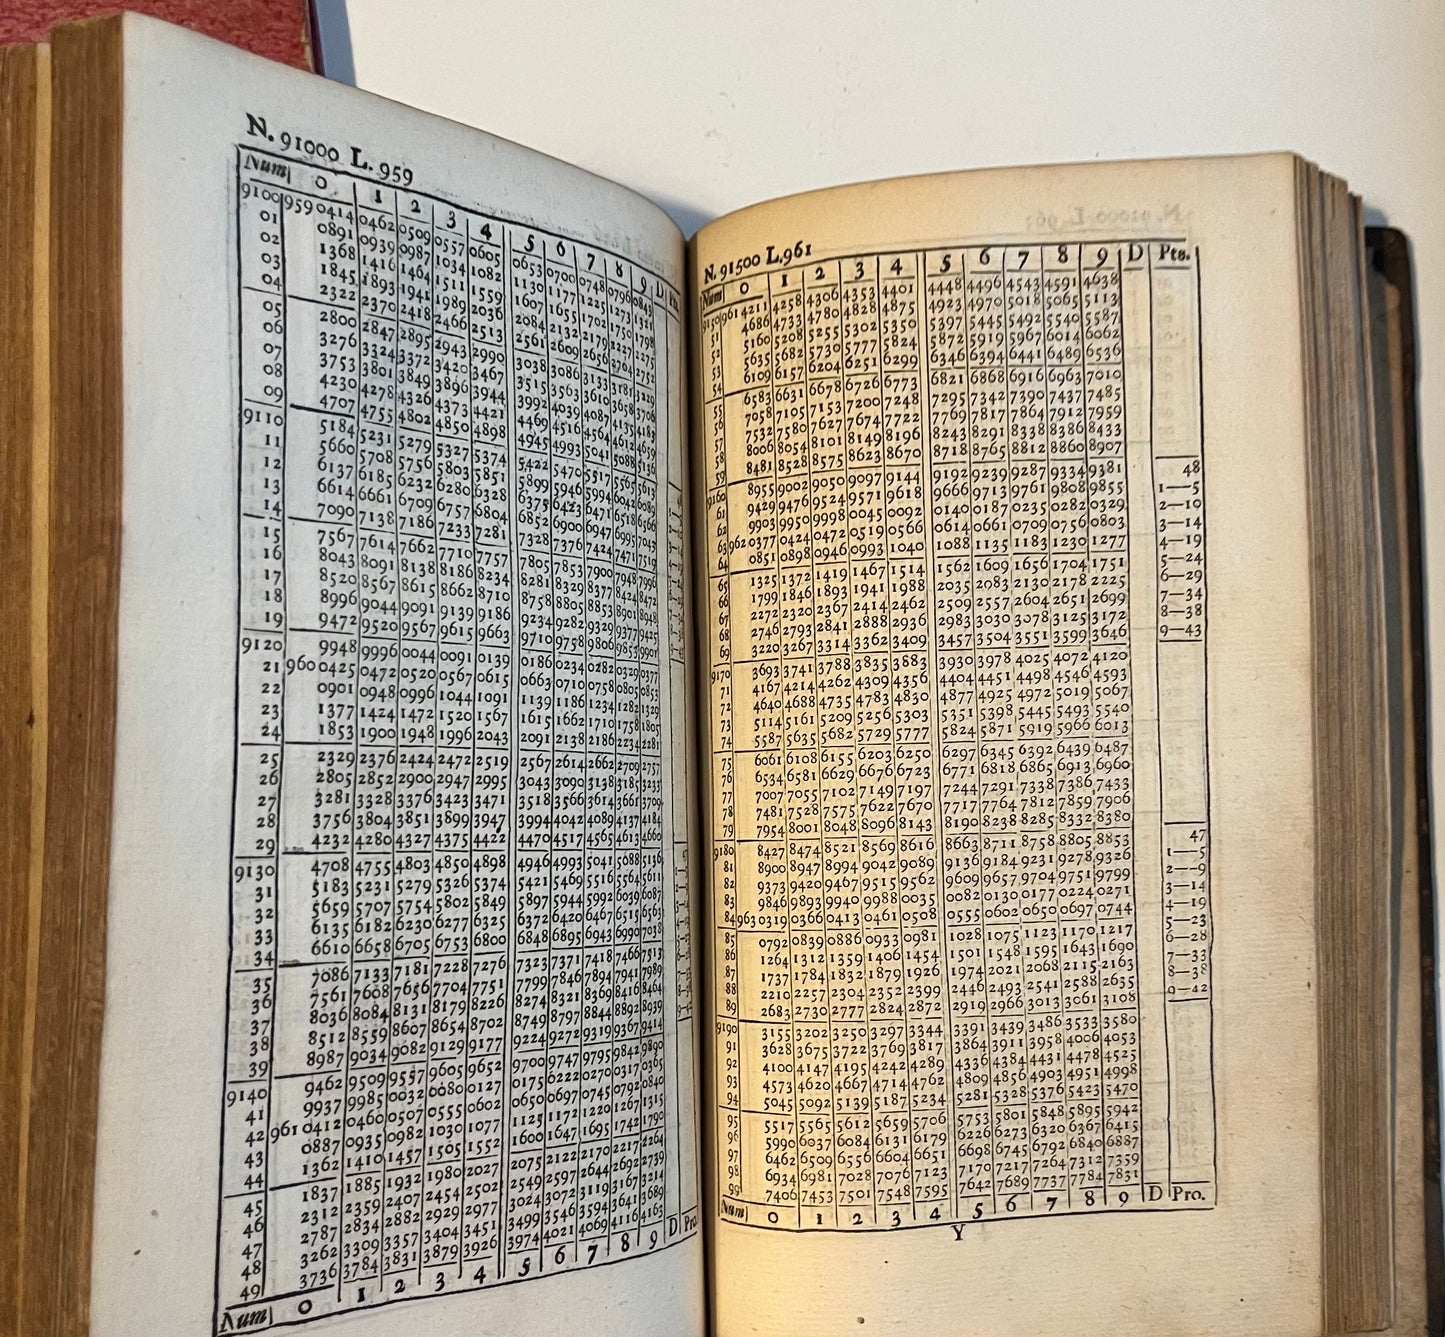 N. 91000 L. 959
Num 0 1 2 3 4 5 6 7 8 9 D
9100 959 0414 0462 0509 0557 0605 0653 0700 0748 0796 0843
01 0891 0939 0987 1034 1082 1130 1177 1225 1273 1321
02 1368 1416 1464 1511 1559 1607 1655 1702 1750 1798
03 1845 1893 1941 1989 2036 2084 2132 2179 2227 2275
04 2322 2370 2418 2466 2513 2561 2609 2656 2704 2752
05 2800 2847 2895 2943 2990 3038 3086 3133 3181 3229
06 3276 3324 3372 3420 3467 3515 3563 3610 3658 3706
07 3753 3801 3849 3896 3944 3992 4039 4087 4135 4183
08 4230 4278 4326 4373 4421 4469 4516 4564 4612 4659
09 4707 4755 4802 4850 4898 4945 4993 5041 5088 5136
9110 5184 5231 5279 5327 5374 5422 5470 5517 5565 5613
11 5660 5708 5756 5803 5851 5899 5946 5994 6042 6089
12 6137 6185 6232 6280 6328 6375 6423 6471 6518 6566
13 6614 6661 6709 6757 6804 6852 6900 6947 6995 7043
14 7090 7138 7186 7233 7281 7328 7376 7424 7471 7519
15 7567 7614 7662 7710 7757 7805 7853 7900 7948 7996
16 8043 8091 8138 8186 8234 8281 8329 8377 8424 8472
17 8520 8567 8615 8662 8710 8758 8805 8853 8901 8948
18 8996 9044 9091 9139 9186 9234 9282 9329 9377 9425
19 9472 9520 9567 9615 9663 9710 9758 9806 9853 9901
9120 9948 9996 0044 0091 0139 0186 0234 0282 0329 0377
21 960 0425 0472 0520 0567 0615 0663 0710 0758 0805 0853
22 0901 0948 0996 1044 1091 1139 1186 1234 1282 1329
23 1377 1424 1472 1520 1567 1615 1662 1710 1758 1805
24 1853 1900 1948 1996 2043 2091 2138 2186 2234 2281
25 2329 2376 2424 2472 2519 2567 2614 2662 2709 2757
26 2805 2852 2900 2947 2995 3043 3090 3138 3185 3233
27 3281 3328 3376 3423 3471 3518 3566 3614 3661 3709
28 3756 3804 3851 3899 3947 3994 4042 4089 4137 4184
29 4232 4280 4327 4375 4422 4470 4517 4565 4613 4660
9130 4708 4755 4803 4850 4898 4946 4993 5041 5688 5136
31 5183 5231 5279 5326 5374 5421 5469 5516 5564 5611
32 5659 5707 5754 5802 5849 5897 5944 5992 6039 6087
33 6135 6182 6230 6277 6325 6372 6420 6467 6515 6563
34 6610 6658 6705 6753 6800 6848 6895 6943 6990 7038
35 7086 7133 7181 7228 7276 7323 7371 7418 7466 7513
36 7561 7608 7656 7704 7751 7799 7846 7894 7941 7989
37 8036 8084 8131 8179 8226 8274 8321 8369 8416 8464
38 8512 8559 8607 8654 8702 8749 8797 8844 8892 8939
39 8987 9034 9082 9129 9177 9224 9272 9319 9367 9414
9140 9462 9509 9557 9605 9652 9700 9747 9795 9842 9890
41 9937 9985 0032 0080 0127 0175 6222 0270 0317 0365
42 961 0412 0460 0507 0555 0602 0650 0697 0745 0792 0840
43 0887 0935 0982 1030 1077 1125 1172 1220 1267 1315
44 1362 1410 1457 1505 1552 1600 1647 1695 1742 1790
45 1837 1885 1932 1980 2027 2075 2122 2170 2217 2264
46 2312 2359 2407 2454 2502 2549 2597 2644 2692 2739
47 2787 2834 2882 2929 2977 3024 3072 3119 3167 3214
48 3262 3309 3357 3404 3451 3499 3546 3594 3641 3689
49 3736 3784 3831 3879 3926 3974 4021 4069 4116 4163
Num 0 1 2 3 4 5 6 7 8 9 D Pro.
N. 91500 L. 961
Num 0 1 2 3 4 5 6 7 8 9 D Pts.
9150 961 4211 4258 4306 4353 4401 4448 4496 4543 4591 4638
51 4686 4733 4780 4828 4875 4923 4970 5018 5065 5113
52 5160 5208 5255 5302 5350 5397 5445 5492 5540 5587
53 5635 5682 5730 5777 5824 5872 5919 5967 6014 6062
54 6109 6157 6204 6251 6299 6346 6394 6441 6489 6536
55 6583 6631 6678 6726 6773 6821 6868 6916 6963 7010
56 7058 7105 7153 7200 7248 7295 7342 7390 7437 7485
57 7532 7580 7627 7674 7722 7769 7817 7864 7912 7959
58 8006 8054 8101 8149 8196 8243 8291 8338 8386 8433
59 8481 8528 8575 8623 8670 8718 8765 8812 8860 8907
9160 8955 9002 9050 9097 9144 9192 9239 9287 9334 9381 48
61 9429 9476 9524 9571 9618 9666 9713 9761 9808 9855 1—5
62 9903 9950 9998 0045 0092 0140 0187 0235 0282 0329 2—10
63 962 0377 0424 0472 0519 0566 0614 0661 0709 0756 0803 3—14
64 0851 0898 0946 0993 1040 1088 1135 1183 1230 1277 4—19
65 1325 1372 1419 1467 1514 1562 1609 1656 1704 1751 5—24
66 1799 1846 1893 1941 1988 2035 2083 2130 2178 2225 6—29
67 2272 2320 2367 2414 2462 2509 2557 2604 2651 2699 7—34
68 2746 2793 2841 2888 2936 2983 3030 3078 3125 3172 8—38
69 3220 3267 3314 3362 3409 3457 3504 3551 3599 3646 9—43
9170 3693 3741 3788 3835 3883 3930 3978 4025 4072 4120
71 4167 4214 4262 4309 4356 4404 4451 4498 4546 4593
72 4640 4688 4735 4783 4830 4877 4925 4972 5019 5067
73 5114 5161 5209 5256 5303 5351 5398 5445 5493 5540
74 5587 5635 5682 5729 5777 5824 5871 5919 5966 6013
75 6061 6108 6155 6203 6250 6297 6345 6392 6439 6487
76 6534 6581 6629 6676 6723 6771 6818 6865 6913 6960
77 7007 7055 7102 7149 7197 7244 7291 7338 7386 7433
78 7481 7528 7575 7622 7670 7717 7764 7812 7859 7906
79 7954 8001 8048 8096 8143 8190 8238 8285 8332 8380
9180 8427 8474 8521 8569 8616 8663 8711 8758 8805 8853 47
81 8900 8947 8994 9042 9089 9136 9184 9231 9278 9326 1—5
82 9373 9420 9467 9515 9562 9609 9657 9704 9751 9799 2—9
83 9846 9893 9940 9988 0035 0082 0130 0177 0224 0271 3—14
84 963 0319 0366 0413 0461 0508 0555 0602 0650 0697 0744 4—19
85 0792 0839 0886 0933 0981 1028 1075 1123 1170 1217 5—23
86 1264 1312 1359 1406 1454 1501 1548 1595 1643 1690 6—28
87 1737 1784 1832 1879 1926 1974 2021 2068 2115 2163 7—33
88 2210 2257 2304 2352 2399 2446 2493 2541 2588 2635 8—38
89 2683 2730 2777 2824 2872 2919 2966 3013 3061 3108 9—42
9190 3155 3202 3250 3297 3344 3391 3439 3486 3533 3580
91 3628 3675 3722 3769 3817 3864 3911 3958 4006 4053
92 4100 4147 4195 4242 4289 4336 4384 4431 4478 4525
93 4573 4620 4667 4714 4762 4809 4856 4903 4951 4998
94 5045 5092 5139 5187 5234 5281 5328 5376 5423 5470
95 5517 5565 5612 5659 5706 5753 5801 5848 5895 5942
96 5990 6037 6084 6131 6179 6226 6273 6320 6367 6415
97 6462 6509 6556 6604 6651 6698 6745 6792 6840 6887
98 6934 6981 7028 7076 7123 7170 7217 7264 7312 7359
99 7406 7453 7501 7548 7595 7642 7689 7737 7784 7831
Num 0 1 2 3 4 5 6 7 8 9 D Pro.
Y